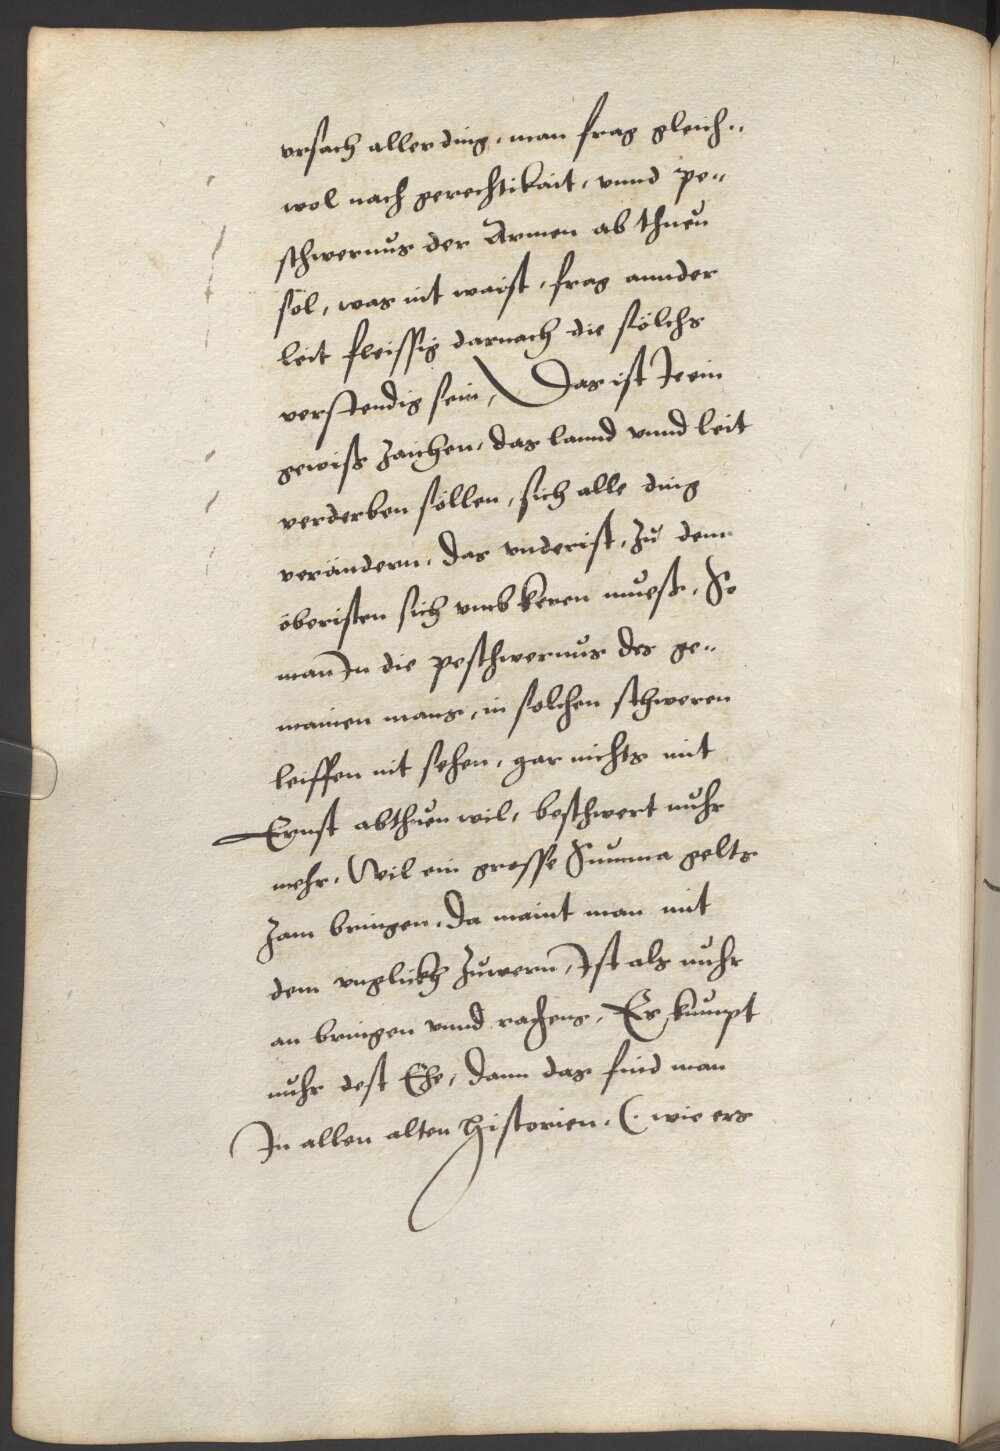 vrsach aller ding, man frag gleich„
wol nach gerechtikait, vnnd pe„
schwernus der Armen ab thuen
söl, was nit waist, frag annder
leit fleissig darnach die sölchs
verstendig sein, Das ist Je ein
gewiß zaichen, das lannd vnnd leit
verderben söllen, sich alle ding
verändern, das vnderist, zu dem
öberisten sich vmb keren mueß, So
man Jn die peschwernus des ge„
mainen mans, in solchen schweren
leiffen nit sehen, gar nichts mit
Ernst abthuen wil, beschwert nuhr
mehr, Wil ein grosse Summa gelts
zam bringen, da maint man mit
dem vnglückh zuwern, Jst als nuhr
an bringen vnnd rachens, Es kumpt
nuhr dest Ehe, dann das find man
Jn allen alten historien, (: wie ers